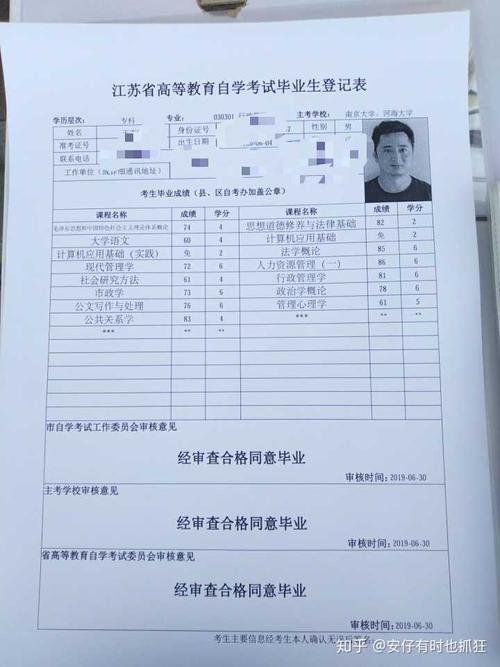 江苏省高等教育自学考试毕业生登记表
学历层次: 专科 专业: 030301 主考学校: 南京大学、河海大学
姓名 身份证号 性别 男
准考证号 出生日期
联系电话
工作单位
考生毕业成绩(县、区自考办加盖公章)
课程名称 成绩 学分 课程名称 成绩 学分
毛泽东思想和中国特色社会主义理论体系概论 74 4 思想道德修养与法律基础 82 2
大学语文 60 4 计算机应用基础 免 2
计算机应用基础(实践) 免 2 法学概论 85 6
现代管理学 72 6 人力资源管理(一) 86 6
社会研究方法 61 4 行政管理学 81 6
市政学 73 6 政治学概论 78 6
公文写作与处理 76 6 管理心理学 61 5
公共关系学 83 4 *** ** **
*** ** **
市自学考试工作委员会审核意见
经审查合格同意毕业
审核时间:2019-06-30
主考学校审核意见
经审查合格同意毕业
审核时间:2019-06-30
省高等教育自学考试委员会审核意见
经审查合格同意毕业
审核时间:2019-06-30
考生主要信息经考生本人确认无误后签名
知乎 @安仔有时也抓狂